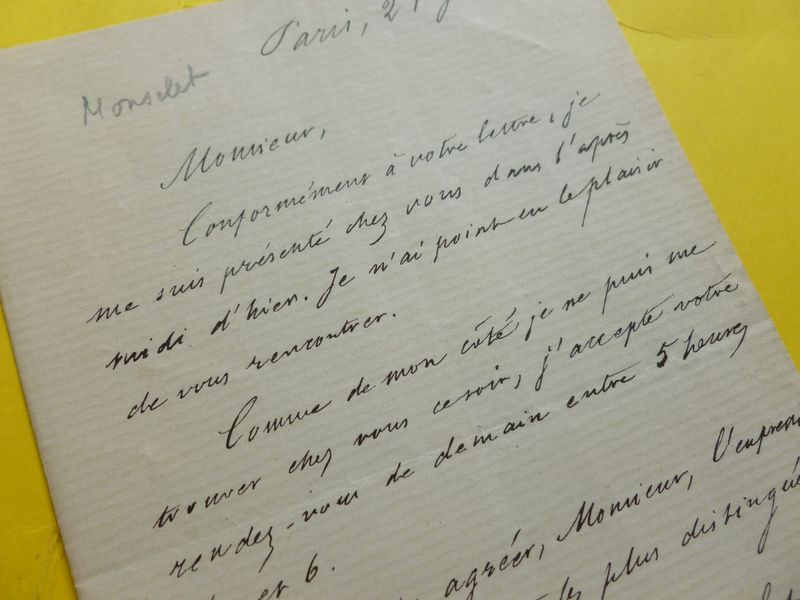 Paris, 2
Monselet
Monsieur,
Conformément à votre lettre, je
me suis présenté chez vous dans l'après
midi d'hier. Je n'ai point eu le plaisir
de vous rencontrer.
Comme de mon côté je ne puis me
trouver chez vous ce soir, j'accepte votre
rendez-vous de demain entre 5 heures
et 6.
agréer, Monsieur, l'expression
plus distingués